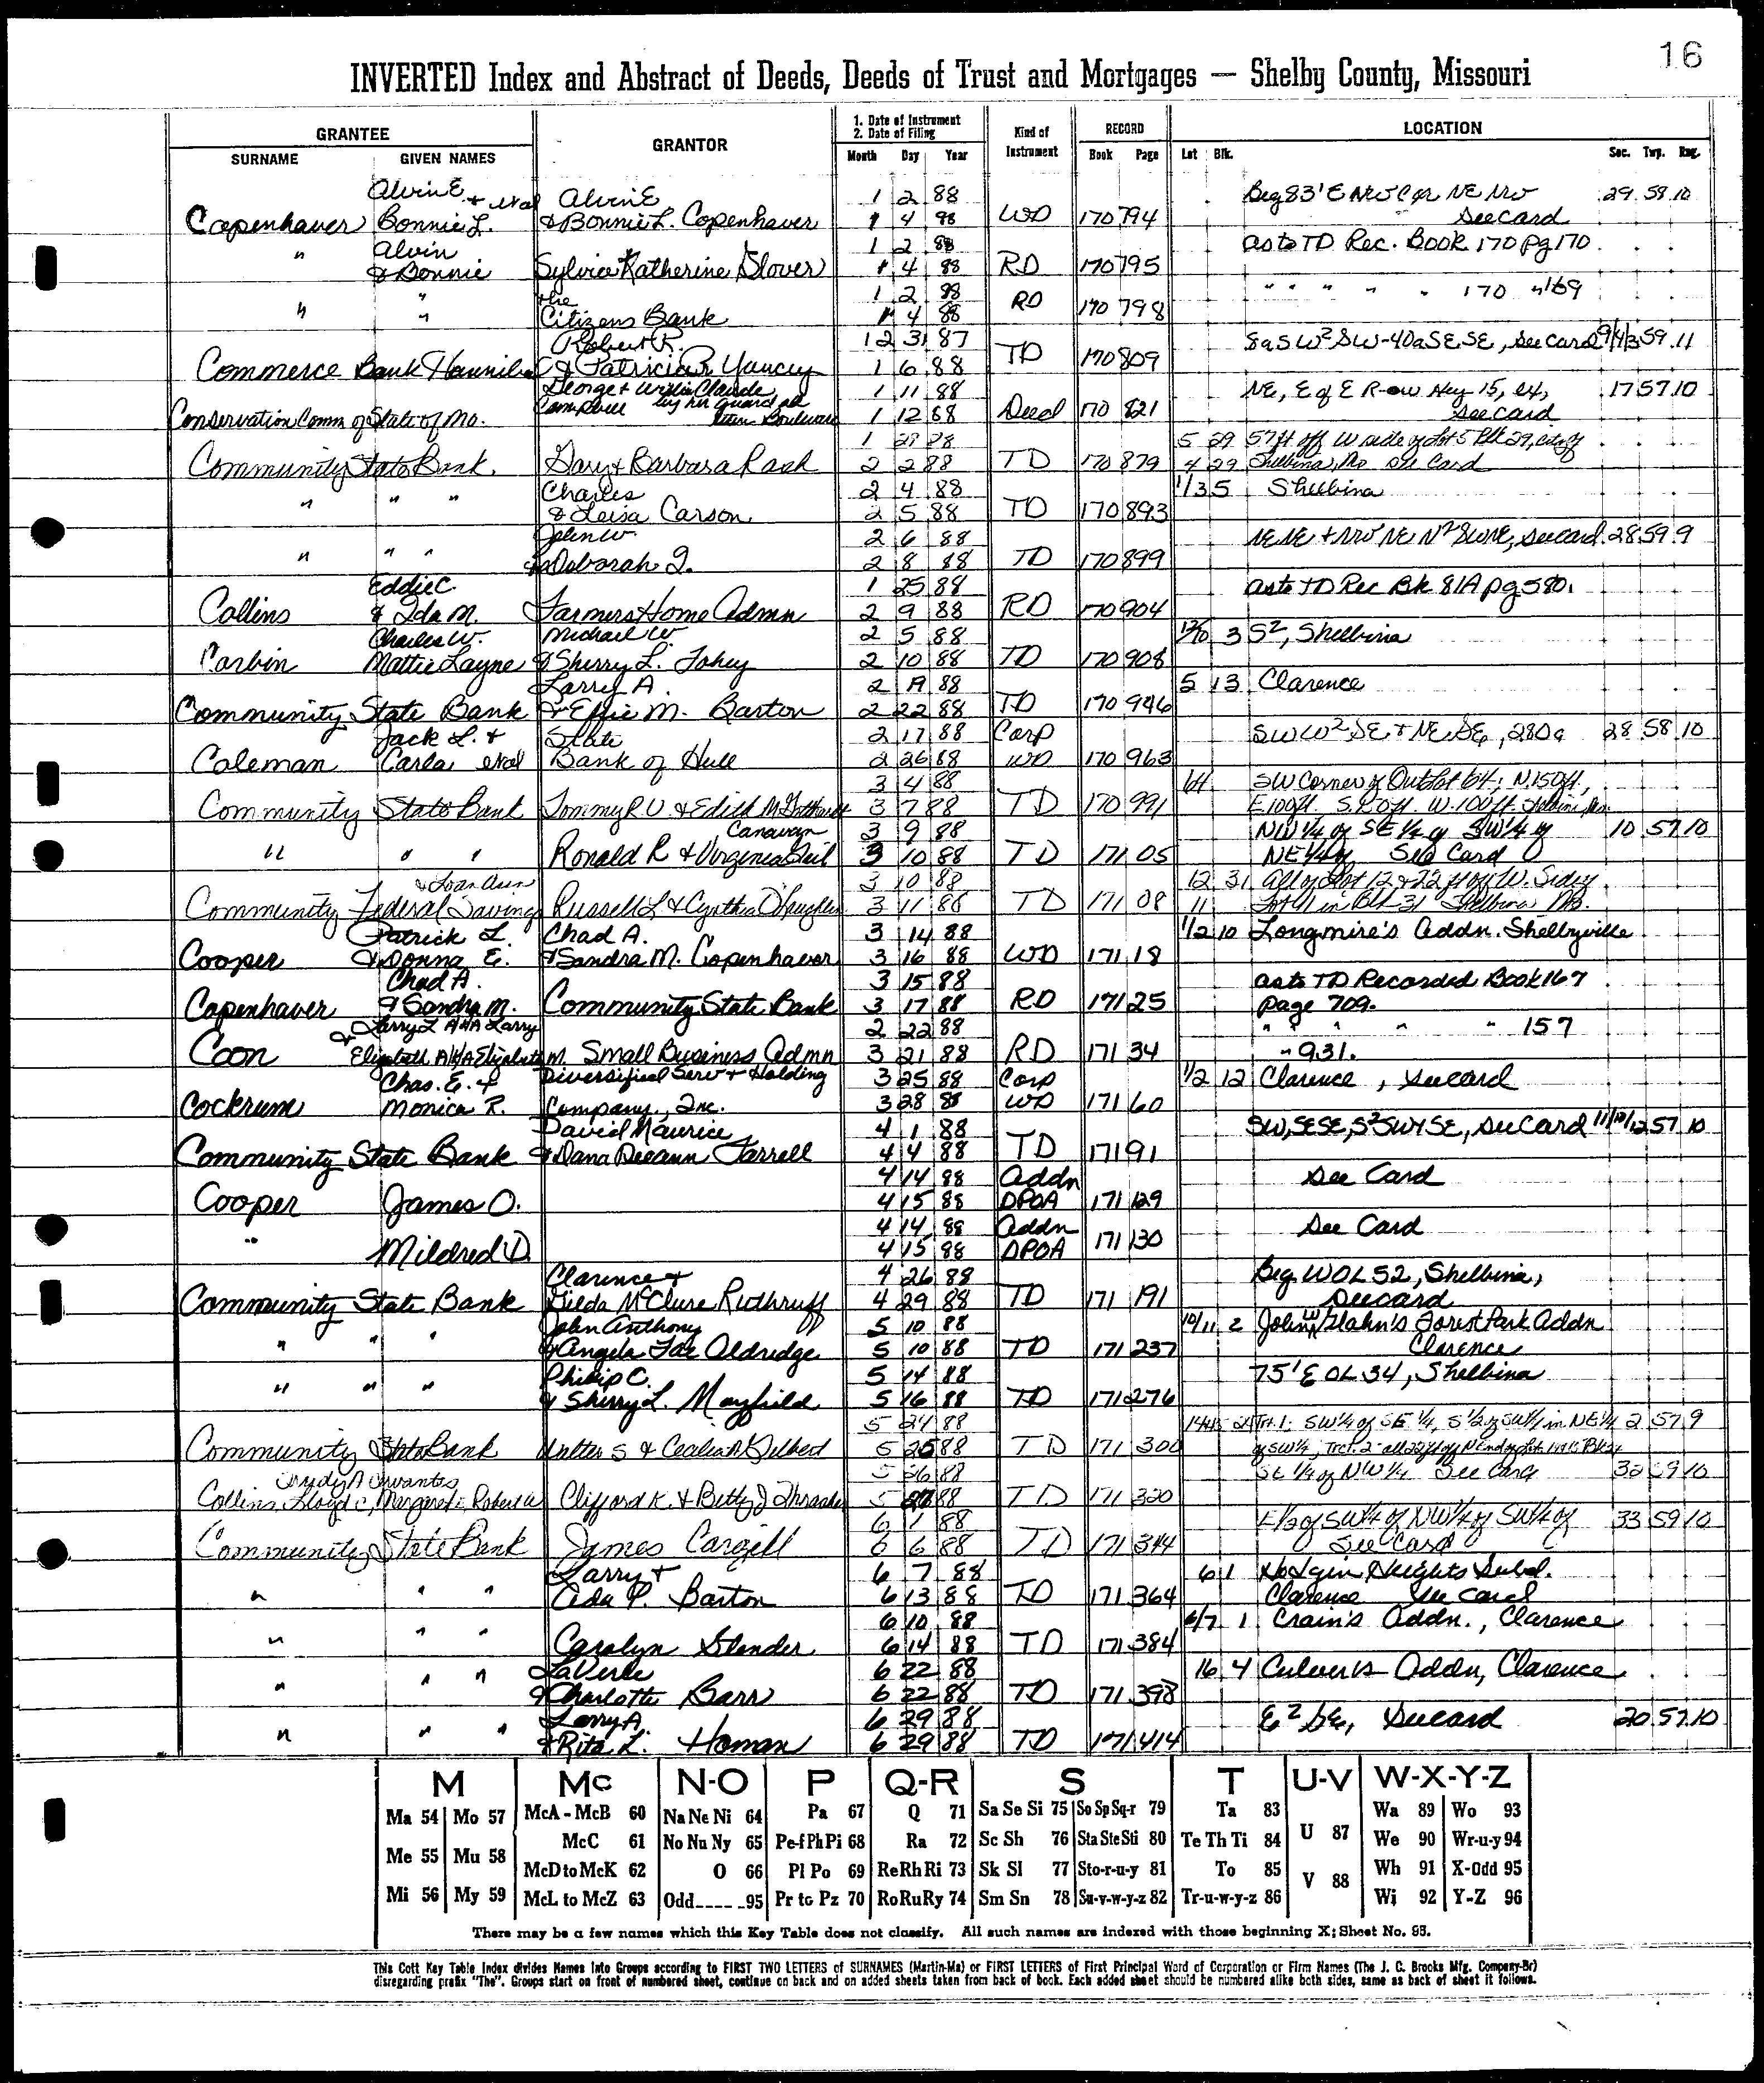 16
INVERTED Index and Abstract of Deeds, Deeds of Trust and Mortgages — Shelby County, Missouri
GRANTEE GRANTOR 1. Date of Instrument 2. Date of Filing Kind of Instrument RECORD LOCATION
SURNAME GIVEN NAMES Month Day Year Book Page Lot Blk. Sec. Twp. Rng.
Alvin E. & etal Alvin E 1 2 88 Beg 83' E NW Cor NE NW 29 58 10
Copenhaver Bonnie L. & Bonnie L. Copenhaver 1 4 88 WD 170 794 See card
Alvin 1 2 88 as to TD Rec. Book 170 pg 170
" & Bonnie Sylvia Katherine Glover 1 4 88 RD 170 795
" the 1 2 88 " " " " " 170 " 169
" " Citizens Bank 1 4 88 RD 170 798
Robert R. 12 31 87 8a SW² SW-40a SE SE, See card 9/4/3 59 11
Commerce Bank Hannibal & Patricia R Yancey 1 6 88 TD 170 809
George & Claude 1 11 88 NE, E of E R-ow Hwy 15, ex, 17 57 10
Conservation Comm of State of Mo. 1 12 88 Deed 170 821 See card
1 29 88 5 29 57 ft off W side of Lot 5 Blk 29, city of
Community State Bank. Gary & Barbara Rash 2 2 88 TD 170 879 4 29 Shelbina, Mo See Card
Charles 2 4 88 1/3 5 Shelbina
" " " & Leisa Carson 2 5 88 TD 170 893
John W. 2 6 88 NE NE + NW NE N² SWNE, see card 28 59 9
" " " & Deborah J. 2 8 88 TD 170 899
Eddie C. 1 25 88 as to TD Rec Bk 81A pg 580.
Collins & Ida M. Farmers Home Admn 2 9 88 RD 170 904
Charles W. Michael W. 2 5 88 12/10 3 S², Shelbina
Corbin Mattie Layne & Sherry L. Fohey 2 10 88 TD 170 908
Larry A. 2 19 88 5 13 Clarence
Community State Bank & Effie M. Barton 2 22 88 TD 170 946
Jack L. & State 2 17 88 Corp SW W² SE & NE SE, 280a 28 58 10
Coleman Carla etal Bank of Hull 2 26 88 WD 170 963
3 4 88 64 SW Corner of Outlot 64; N. 150 ft,
Community State Bank Tommy R U & Edith M 3 7 88 TD 170 991 E 100 ft. S. 150 ft. W. 100 ft. Shelbina, Mo.
Canaway 3 9 88 NW¼ of SE¼ of SW¼ of 10 57 10
" " " Ronald R & Virginia Gail 3 10 88 TD 171 05 NE¼ of See Card
& Joan Ann 3 10 88 12 31 All of Lot 12 & 22 ft off W. Side of
Community Federal Savings Russell L & Cynthia 3 11 88 TD 171 08 11 Lot 11 in Blk 31 Shelbina Mo.
Patrick L. Chad A. 3 14 88 1/2 10 Longmire's Addn. Shelbyville
Cooper & Donna E. & Sandra M. Copenhaver 3 16 88 WD 171 18
Chad A. 3 15 88 as to TD Recorded Book 167
Copenhaver & Sandra M. Community State Bank 3 17 88 RD 171 25 page 709.
Larry L AKA Larry 2 22 88 " " " " " 157
Coon & Elizabeth AKA Elizabeth M. Small Business Admn 3 21 88 RD 171 34 " 931.
Chas. E. & Diversified Serv & Holding 3 25 88 Corp 1/2 12 Clarence, See card
Cockrum Monica R. Company, Inc. 3 28 88 WD 171 60
David Maurice 4 1 88 SW, SESE, S² SW & SE, See Card 11/10/12 57 10
Community State Bank & Dana Deeann Farrell 4 4 88 TD 171 91
4 14 88 Addn See Card
Cooper James O. 4 15 88 DPOA 171 129
4 14 88 Addn See Card
" Mildred D. 4 15 88 DPOA 171 130
Clarence & 4 26 88 Beg W OL 52, Shelbina,
Community State Bank Gilda McClure Ruthruff 4 29 88 TD 171 191 See card
John Anthony 5 10 88 10/11 2 John W Glahn's Forest Park Addn
" " " & Angela Fae Aldredge 5 10 88 TD 171 237 Clarence
Philip C. 5 14 88 75' E OL 34, Shelbina
" " " & Sherry L. Mayfield 5 16 88 TD 171 276
5 24 88 14&15 24 Trt. 1: SW¼ of SE¼, S½ of SW¼ in NE¼ 2 57 9
Community State Bank Walter S & Cecelia A Gilbert 5 25 88 TD 171 300 of SW¼, Trct. 2- all 22 ft off N End of Lots 14 & 15 Blk 24
Cervantes 5 26 88 SE¼ of NW¼ See Card 32 59 10
Collins, Lloyd C, Margaret E, Robert W Clifford K. & Betty J Thrasher 5 27 88 TD 171 320
6 1 88 E½ of SW¼ of NW¼ of SW¼ of 33 59 10
Community State Bank James Cargill 6 6 88 TD 171 344 See Card
Larry & 6 7 88 6 1 Hodgin Heights Subd.
" " " Ada P. Barton 6 13 88 TD 171 364 Clarence See card
6 10 88 6/7 1 Crain's Addn., Clarence
" " " Carolyn Slender 6 14 88 TD 171 384
LaVerle 6 22 88 16 4 Culver's Addn, Clarence
" " " & Charlotte Barr 6 22 88 TD 171 398
Larry A. 6 29 88 E² SE, See card 20 57 10
" " " & Rita L. Homan 6 29 88 TD 171 414
M Mc N-O P Q-R S T U-V W-X-Y-Z
Ma 54 Mo 57 McA - McB 60 Na Ne Ni 64 Pa 67 Q 71 Sa Se Si 75 So Sp Sq-r 79 Ta 83 Wa 89 Wo 93
Me 55 Mu 58 McC 61 No Nu Ny 65 Pe-f Ph Pi 68 Ra 72 Sc Sh 76 Sta Ste Sti 80 Te Th Ti 84 U 87 We 90 Wr-u-y 94
McD to McK 62 O 66 Pl Po 69 Re Rh Ri 73 Sk Sl 77 Sto-r-u-y 81 To 85 V 88 Wh 91 X-Odd 95
Mi 56 My 59 McL to McZ 63 Odd 95 Pr to Pz 70 Ro Ru Ry 74 Sm Sn 78 Su-v-w-y-z 82 Tr-u-w-y-z 86 Wi 92 Y-Z 96
There may be a few names which this Key Table does not classify. All such names are indexed with those beginning X; Sheet No. 95.
This Cott Key Table Index divides Names Into Groups according to FIRST TWO LETTERS of SURNAMES (Martin-Ma) or FIRST LETTERS of First Principal Word of Corporation or Firm Names (The J. C. Brooks Mfg. Company-Br)
disregarding prefix "The". Groups start on front of numbered sheet, continue on back and on added sheets taken from back of book. Each added sheet should be numbered alike both sides, same as back of sheet it follows.